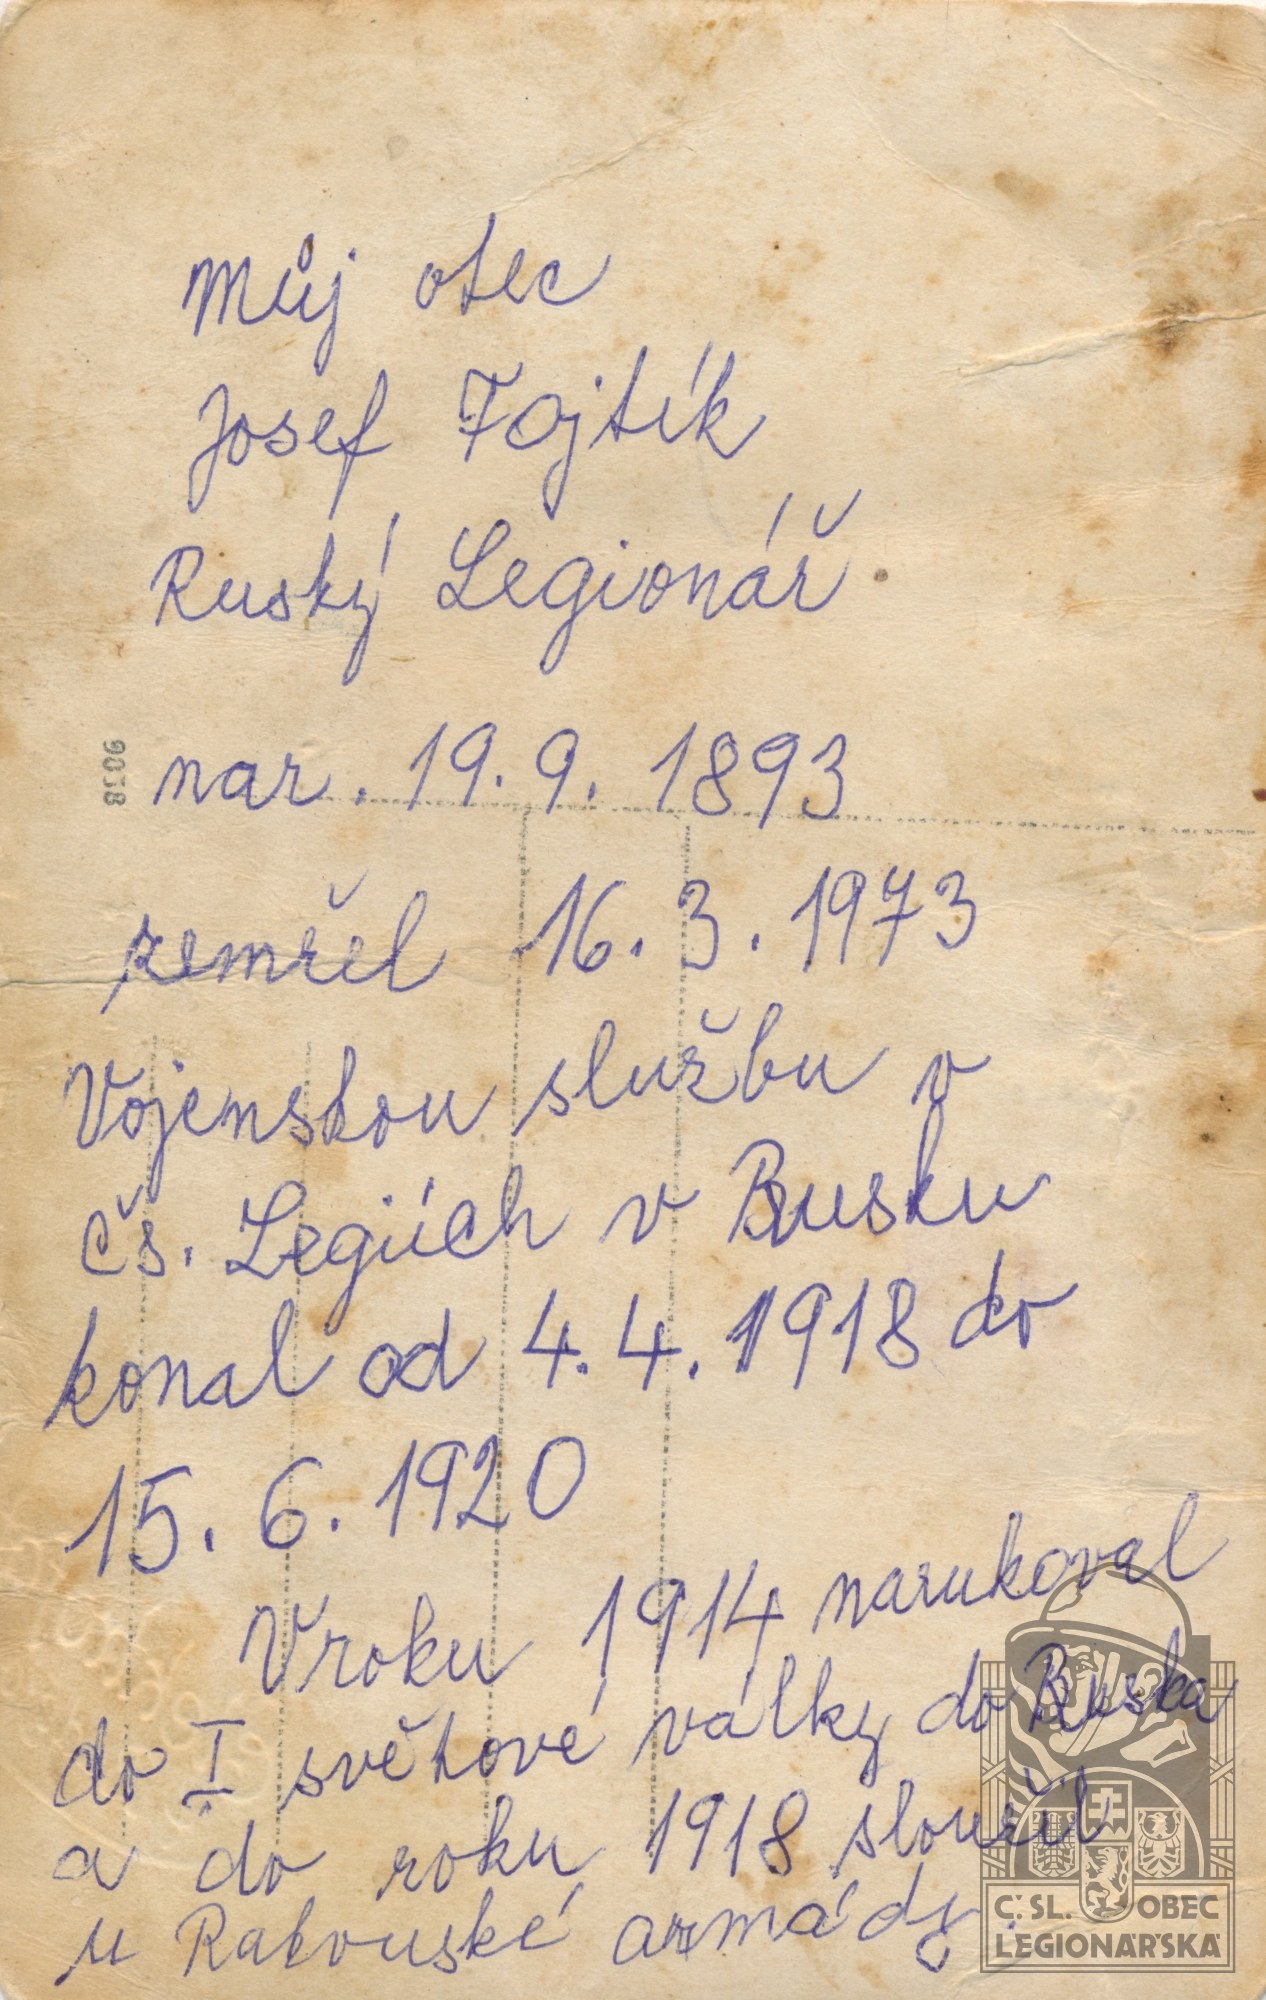 Můj otec
Josef Fojtík
Ruský Legionář
9038
nar. 19. 9. 1893
zemřel 16. 3. 1973
Vojenskou službu v
čs. Legiích v Rusku
konal od 4. 4. 1918 do
15. 6. 1920
V roku 1914 narukoval
do I světové války do Ruska
a do roku 1918 sloužil
u Rakouské armády.
Č. SL. OBEC
LEGIONÁŘSKÁ